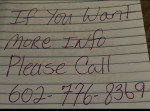 If You Want
More Info
Please Call
602-776-8369